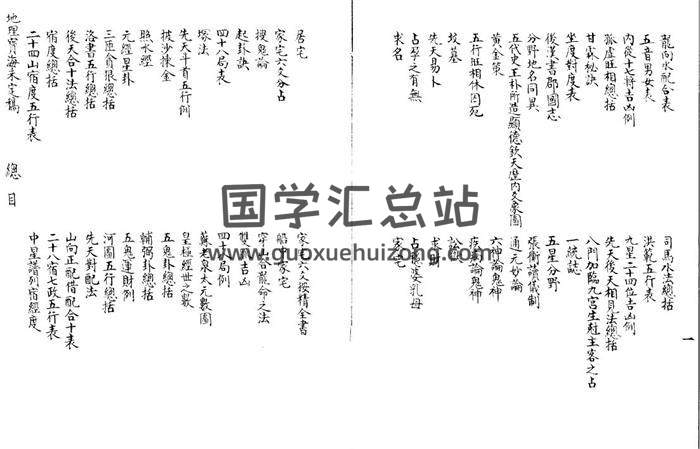 龍向水配合表
司馬水法總括
五音男女表
洪範五行表
內從十七將吉凶例
九星二十四位吉凶例
孤虛旺相總括
先天後天相見法總括
甘霖秘訣
八門加臨九宮生尅主客之占
坐度對度表
一統誌
後漢書郡國志
五星分野
分野地名同異
張衡
儀制
五代史王朴所造顯德欽天歷內爻象圖
黃金策
通元妙論
五行旺相休囚死
六神論鬼神
坟墓
論鬼神
先天易卜
占孕之有無
求名
婆乳母
宅
一
居宅
家宅六爻分占
家宅六爻按精全書
搜鬼論
家宅
起卦訣
論命之法
四十八局表
吉凶
塚法
四十局例
先天斗首五行例
蘇老泉太元數圖
披沙揀金
皇極經世之數
照水經
五鬼卦總括
元經星卦
輔弼卦總括
三匝翕狠總括
五鬼運財例
洛書五行總括
河圖五行總括
後天合十法總括
先天對配法
宿度總括
山向正配借配合十表
二十四山宿度五行表
二十八宿七政五行表
中星譜列宿經度
地理寶海未定稿 總目
国学汇总站
www.guoxuehuizong.com